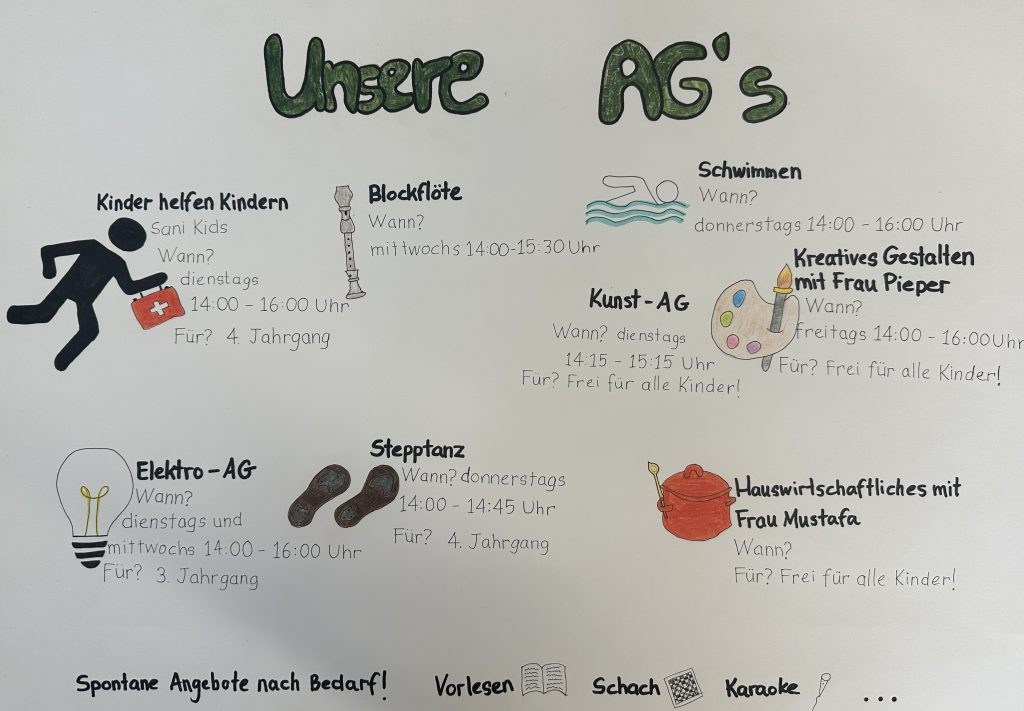 Unsere AG's
Kinder helfen Kindern
Sani Kids
Wann?
dienstags
14:00 - 16:00 Uhr
Für? 4. Jahrgang
Blockflöte
Wann?
mittwochs 14:00-15:30 Uhr
Schwimmen
Wann?
donnerstags 14:00 - 16:00 Uhr
Kunst-AG
Wann? dienstags
14:15 - 15:15 Uhr
Für? Frei für alle Kinder!
Kreatives Gestalten
mit Frau Pieper
Wann?
freitags 14:00 - 16:00 Uhr
Für? Frei für alle Kinder!
Elektro-AG
Wann?
dienstags und
mittwochs 14:00 - 16:00 Uhr
Für? 3. Jahrgang
Stepptanz
Wann? donnerstags
14:00 - 14:45 Uhr
Für? 4. Jahrgang
Hauswirtschaftliches mit
Frau Mustafa
Wann?
Für? Frei für alle Kinder!
Spontane Angebote nach Bedarf! Vorlesen Schach Karaoke ...